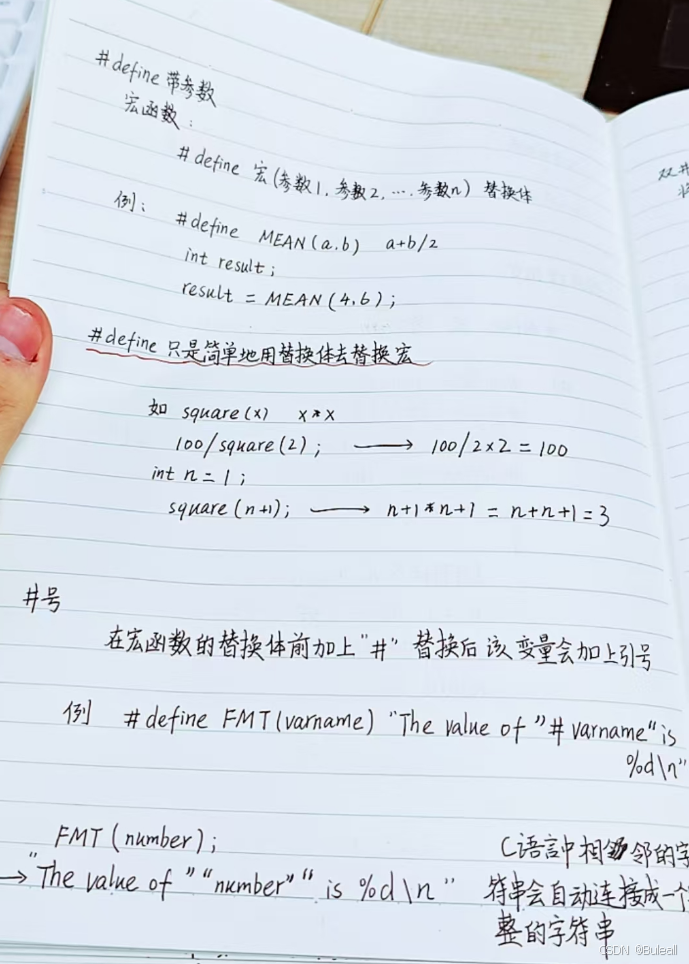 #define 带参数
宏函数：
#define 宏(参数1, 参数2, ···, 参数n) 替换体
例： #define MEAN(a,b) a+b/2
int result;
result = MEAN(4,6);
#define 只是简单地用替换体去替换宏
如 square(x) x*x
100/square(2); → 100/2×2 = 100
int n = 1;
square(n+1); → n+1*n+1 = n+n+1 = 3
#号
在宏函数的替换体前加上"#" 替换后 该变量会加上引号
例 #define FMT(varname) "The value of "# varname" is
%d\n"
FMT(number);
→ "The value of " "number" " is %d\n"
C语言中相邻的字
符串会自动连接成一个
整的字符串
双井
CSDN @Buleall